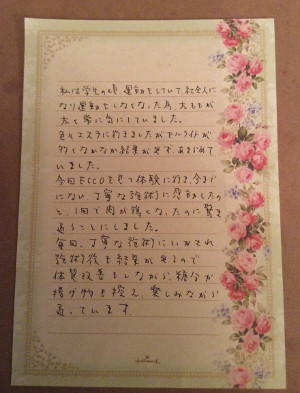 私は学生の時、運動をしていて社会人に
なり運動をしなくなった為、太ももが
太く常に気にしていました。
色々エステに行きましたがセルライトが
多くなかなか結果が出ず、あきらめて
いました。
今回ECCOを見つけ体験に行き、今まで
にない、丁寧な施術に感動したの
と、1回で肉が軟くなったのに驚き
通うことにしました。
毎回、丁寧な施術にいやされ
施術後も結果が出るので
体質改善をしながら、糖分や
揚げ物を控え、楽しみながら
通っています
Hallmark